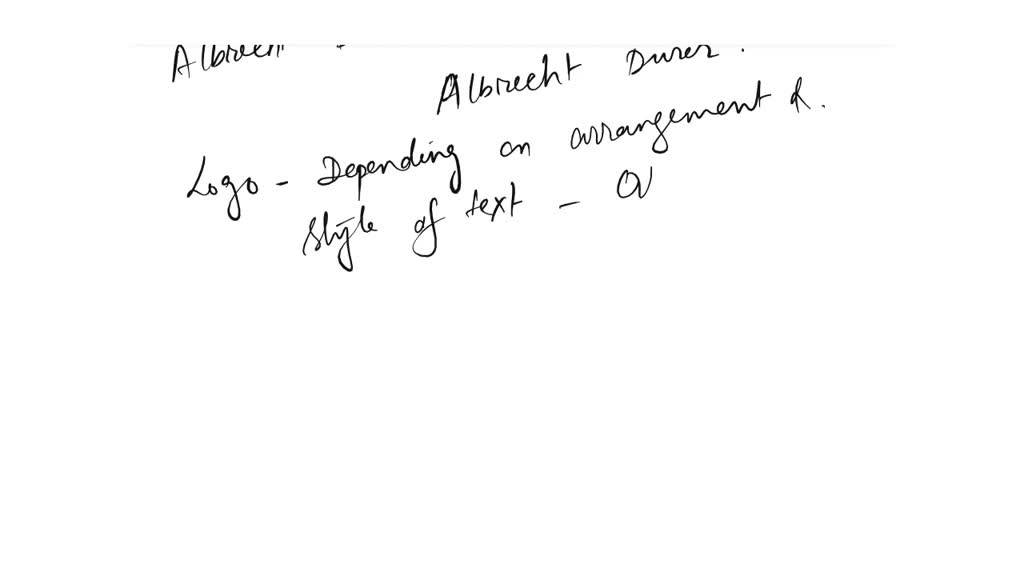 Albrecht Durer.
Logo - Depending on arrangement &.
style of text -